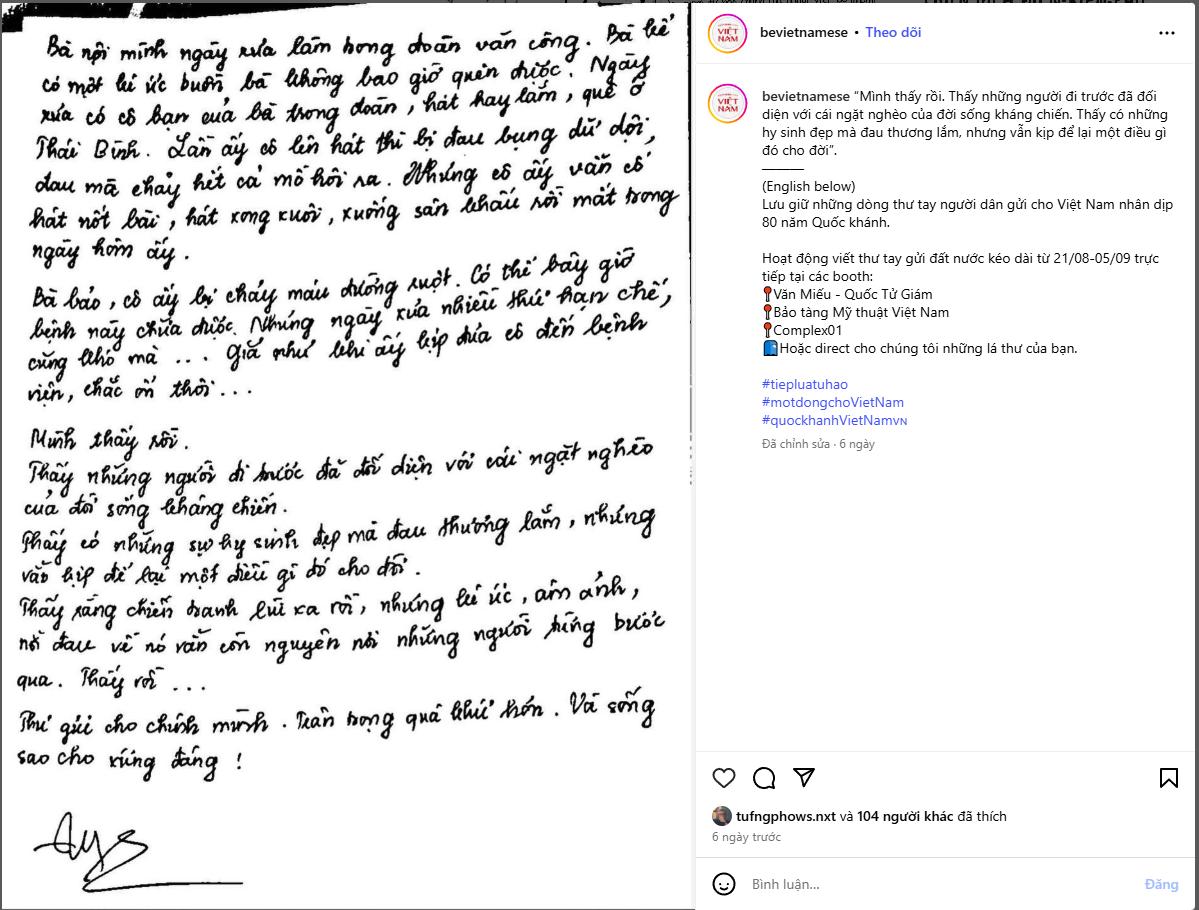 Bà nội mình ngày xưa làm trong đoàn văn công. Bà kể
có một kí ức buồn bà không bao giờ quên được. Ngày
xưa có cô bạn của bà trong đoàn, hát hay lắm, quê ở
Thái Bình. Lần ấy cô lên hát thì bị đau bụng dữ dội,
đau mà chảy hết cả mồ hôi ra. Nhưng cô ấy vẫn cố
hát nốt bài, hát xong xuôi, xuống sân khấu rồi mất trong
ngày hôm ấy.
Bà bảo, cô ấy bị chảy máu đường ruột. Có thể bây giờ
bệnh này chữa được. Nhưng ngày xưa nhiều thứ hạn chế,
cũng khó mà ... Giá như khi ấy kịp đưa cô đến bệnh
viện, chắc ổn thôi...
Mình thấy rồi.
Thấy những người đi trước đã đối diện với cái ngặt nghèo
của đời sống kháng chiến.
Thấy có những sự hy sinh đẹp mà đau thương lắm, nhưng
vẫn kịp để lại một điều gì đó cho đời.
Thấy rằng chiến tranh lùi xa rồi, nhưng kí ức, ám ảnh,
nỗi đau về nó vẫn còn nguyên nơi những người từng bước
qua. Thấy rồi ...
Thư gửi cho chính mình. Trân trọng quá khứ hơn. Và sống
sao cho xứng đáng!
VIỆT
NAM
bevietnamese • Theo dõi
VIỆT
NAM
bevietnamese “Mình thấy rồi. Thấy những người đi trước đã đối
diện với cái ngặt nghèo của đời sống kháng chiến. Thấy có những
hy sinh đẹp mà đau thương lắm, nhưng vẫn kịp để lại một điều gì
đó cho đời”.
———
(English below)
Lưu giữ những dòng thư tay người dân gửi cho Việt Nam nhân dịp
80 năm Quốc khánh.
Hoạt động viết thư tay gửi đất nước kéo dài từ 21/08-05/09 trực
tiếp tại các booth:
📍Văn Miếu - Quốc Tử Giám
📍Bảo tàng Mỹ thuật Việt Nam
📍Complex01
📘Hoặc direct cho chúng tôi những lá thư của bạn.
#tiepluatuhao
#motdongchoVietNam
#quockhanhVietNamVN
Đã chỉnh sửa · 6 ngày
tufngphows.nxt và 104 người khác đã thích
6 ngày trước
Bình luận...
Đăng